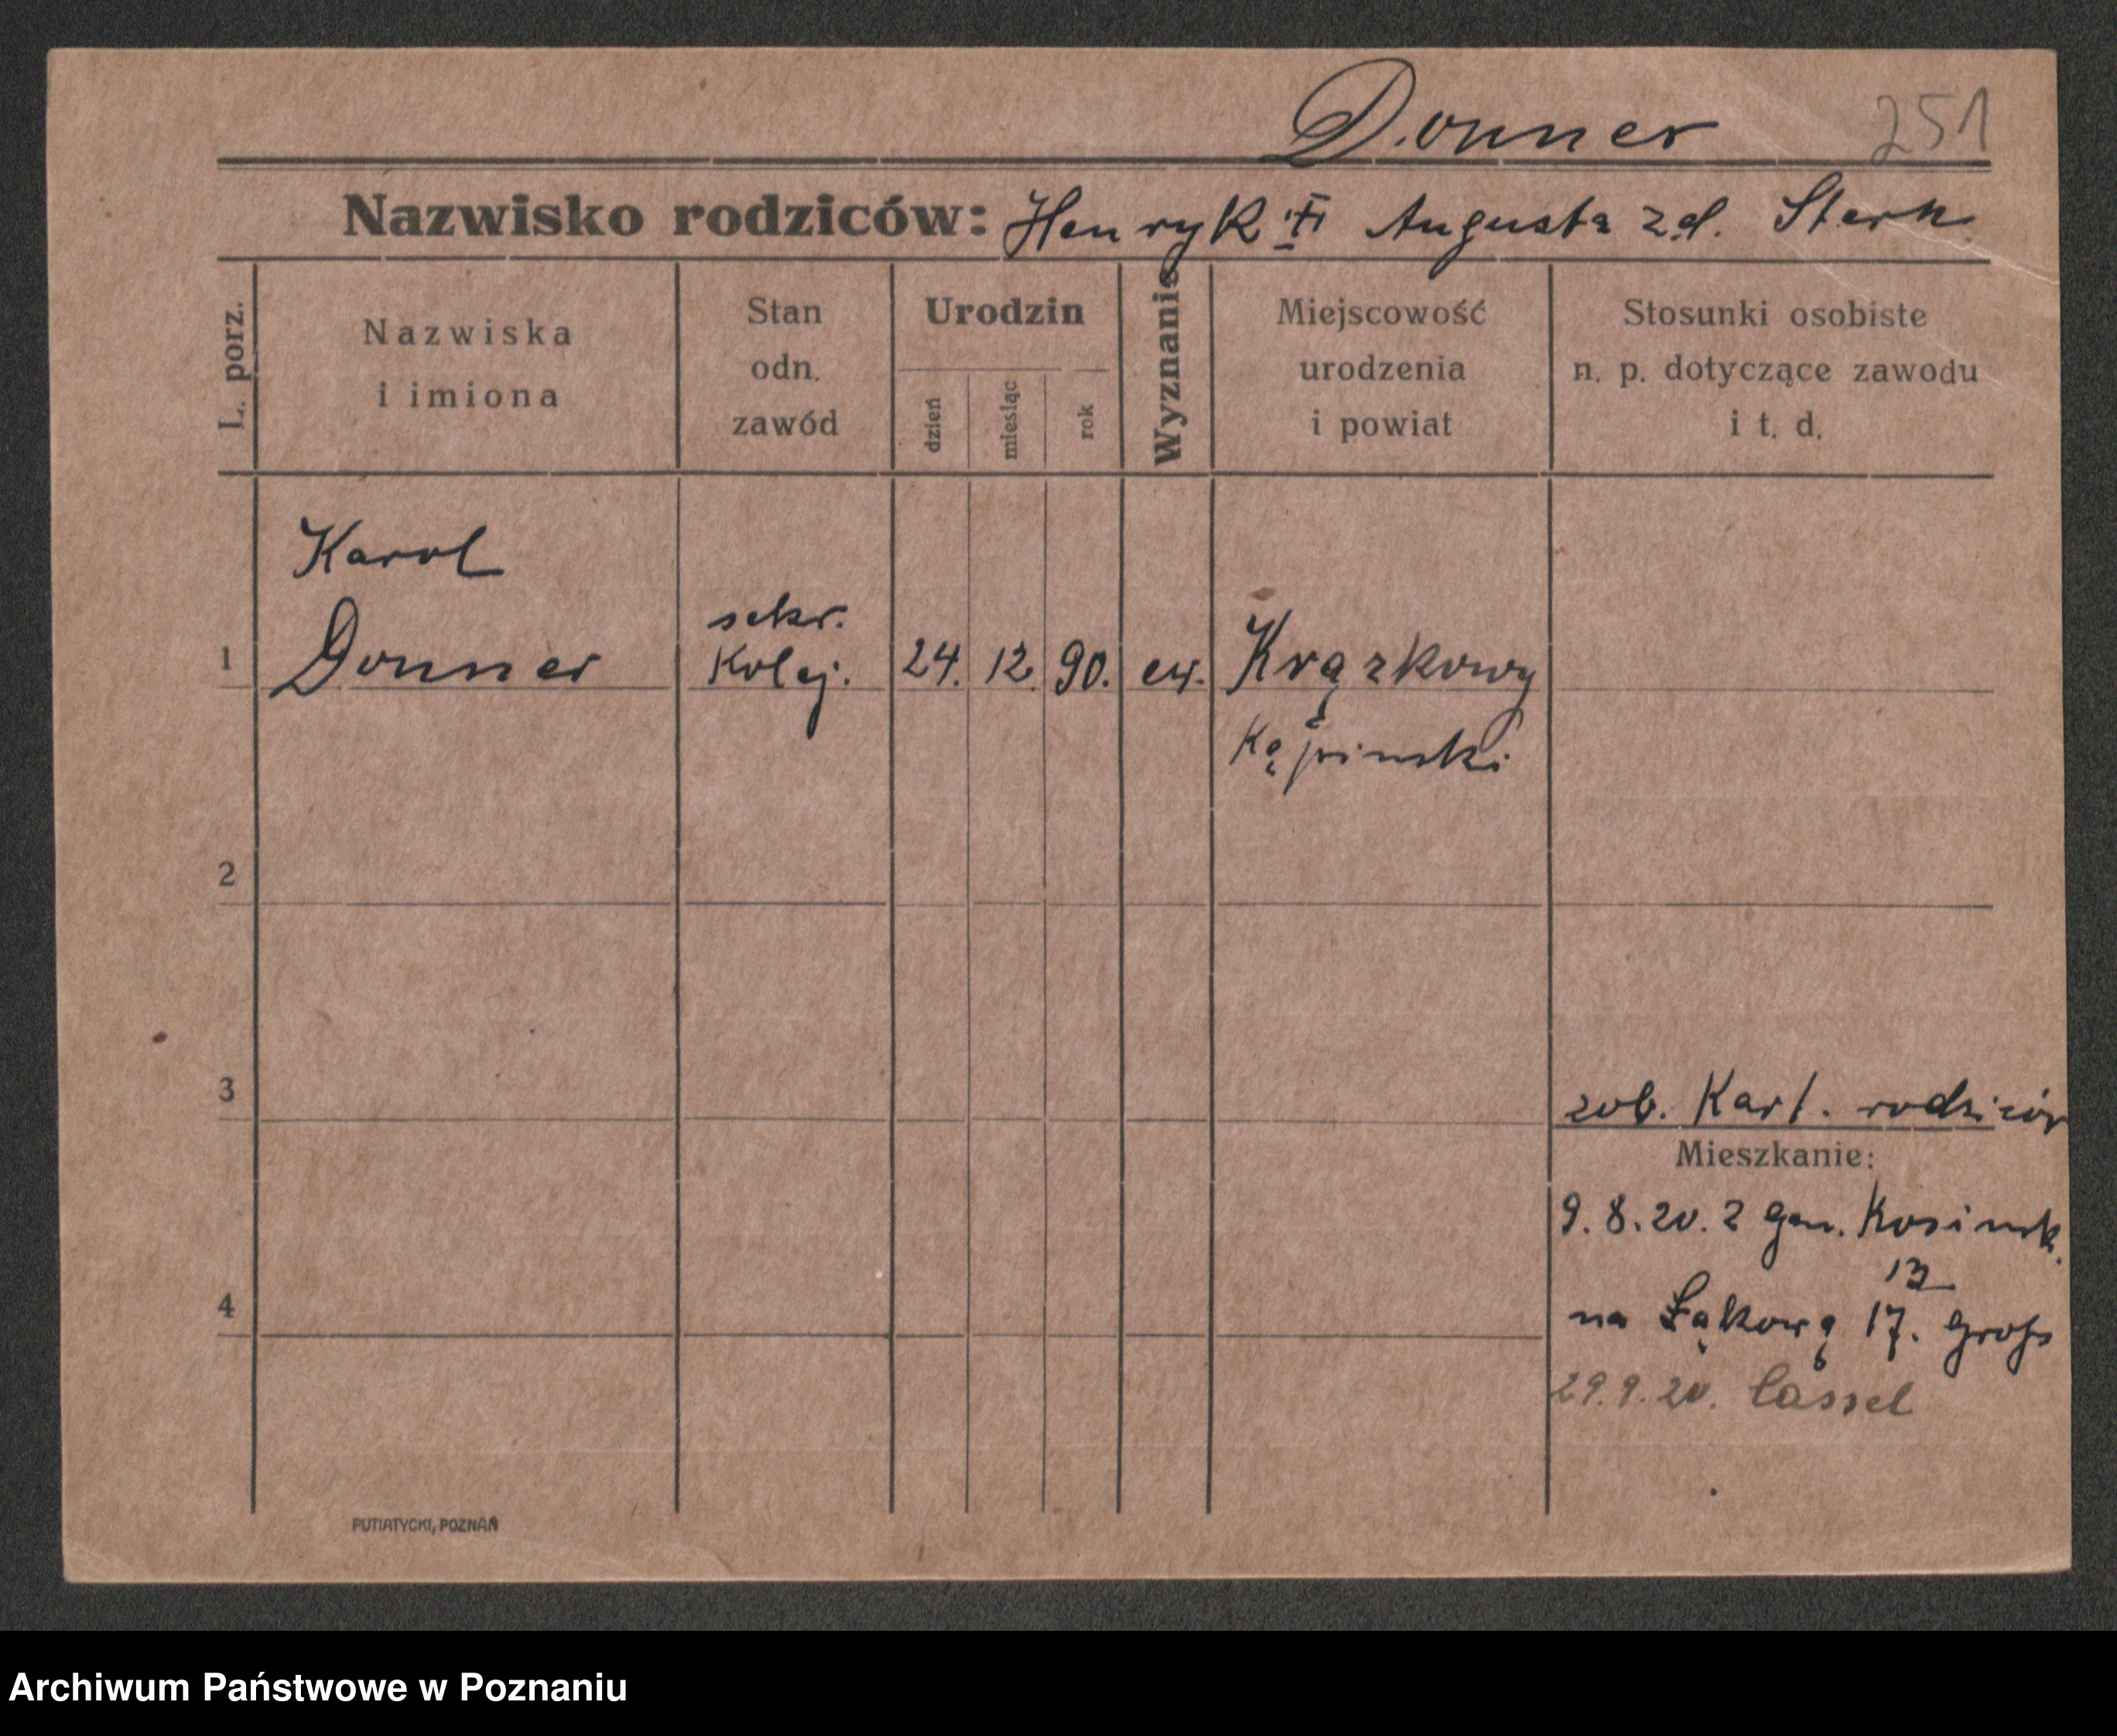 Donner 251
Nazwisko rodziców: Henryk Augusta zd. Sterk
L. porz.
Nazwiska
i imiona
Stan
odn.
zawód
Urodzin
dzień
miesiąc
rok
Wyznanie
Miejscowość
urodzenia
i powiat
Stosunki osobiste
n. p. dotyczące zawodu
i t. d.
Karol
sekr.
1 Donner Kolej. 24. 12. 90. ew. Krązkowy
Kąpinski
2
3
zob. Kart. rodziców
Mieszkanie:
9.8.20. z gen. Kosinsk.
13
na Łąkową 17. Gross
4
29.9.20. Cassel
PUTIATYCKI, POZNAŃ
Archiwum Państwowe w Poznaniu